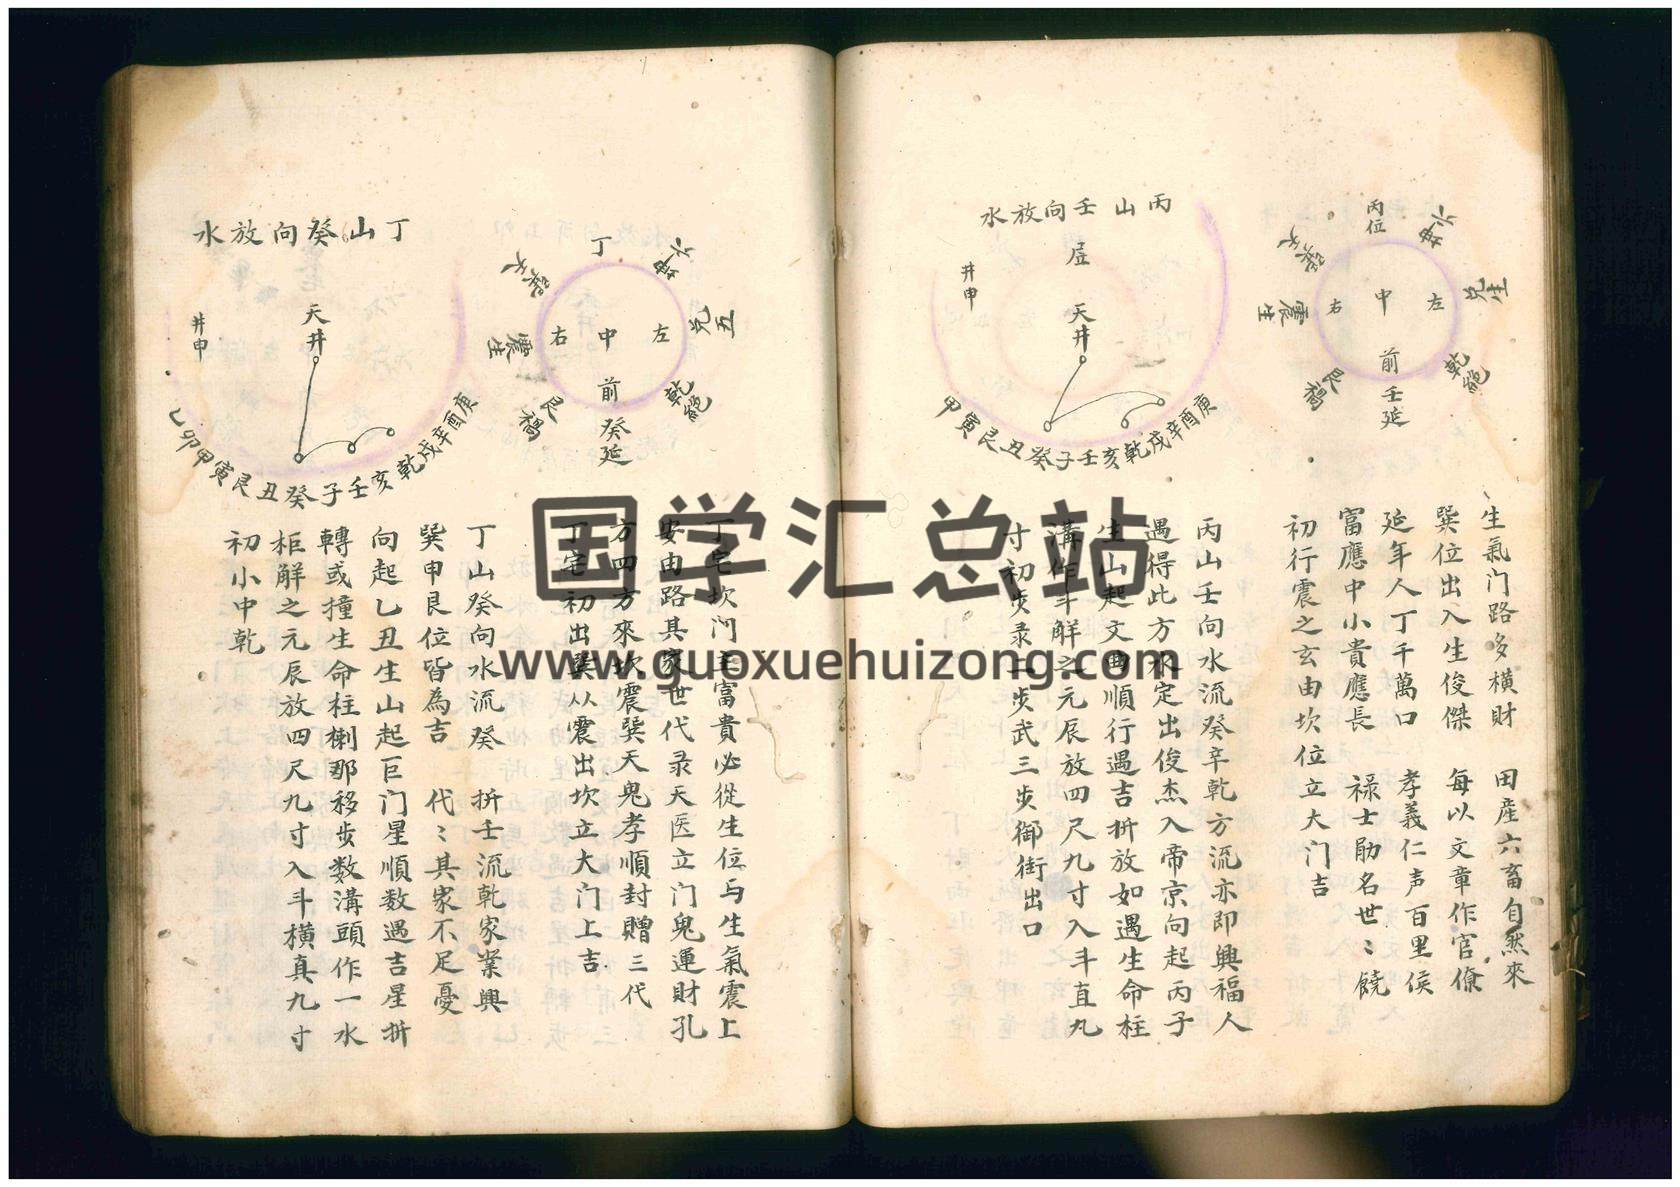 丙位
六坤
兌生
乾絕
前壬延
艮禍
震生
左
中
右
生氣门路多橫財
田産六畜自然來
巽位出入生俊傑
每以文章作官僚
延年人丁千萬口
孝義仁声百里侯
富應中小貴應長
祿士勛名世〻饒
初行震之玄由坎位立大门吉
丙山壬向放水
井申
天井
甲寅艮丑癸子壬亥乾戌辛酉庚
丙山壬向水流癸辛乾方流亦即興福人
遇得此方水定出俊杰入帝京向起丙子
生山起文曲順行遇吉拼放如遇生命柱
溝作斗解之元辰放四尺九寸入斗直九
寸初步录二步武三步御街出口
丁
六坤
五兌
乾絕
前癸延
艮禍
震生
左
中
右
丁宅坎门主富貴必從生位与生氣震上
安由路其家世代录天医立门鬼運財孔
方四方來坎震巽天鬼孝順封贈三代
丁宅初出巽从震出坎立大门上吉
丁山癸向放水
井申
天井
乙卯甲寅艮丑癸子壬亥乾戌辛酉庚
丁山癸向水流癸
拼壬流乾家業興
巽申艮位皆為吉
代〻其家不足憂
向起乙丑生山起巨门星順数遇吉星拼
轉或撞生命柱榭那移步数溝頭作一水
柜解之元辰放四尺九寸入斗橫真九寸
初小中乾
国学汇总站
www.guoxuehuizong.com